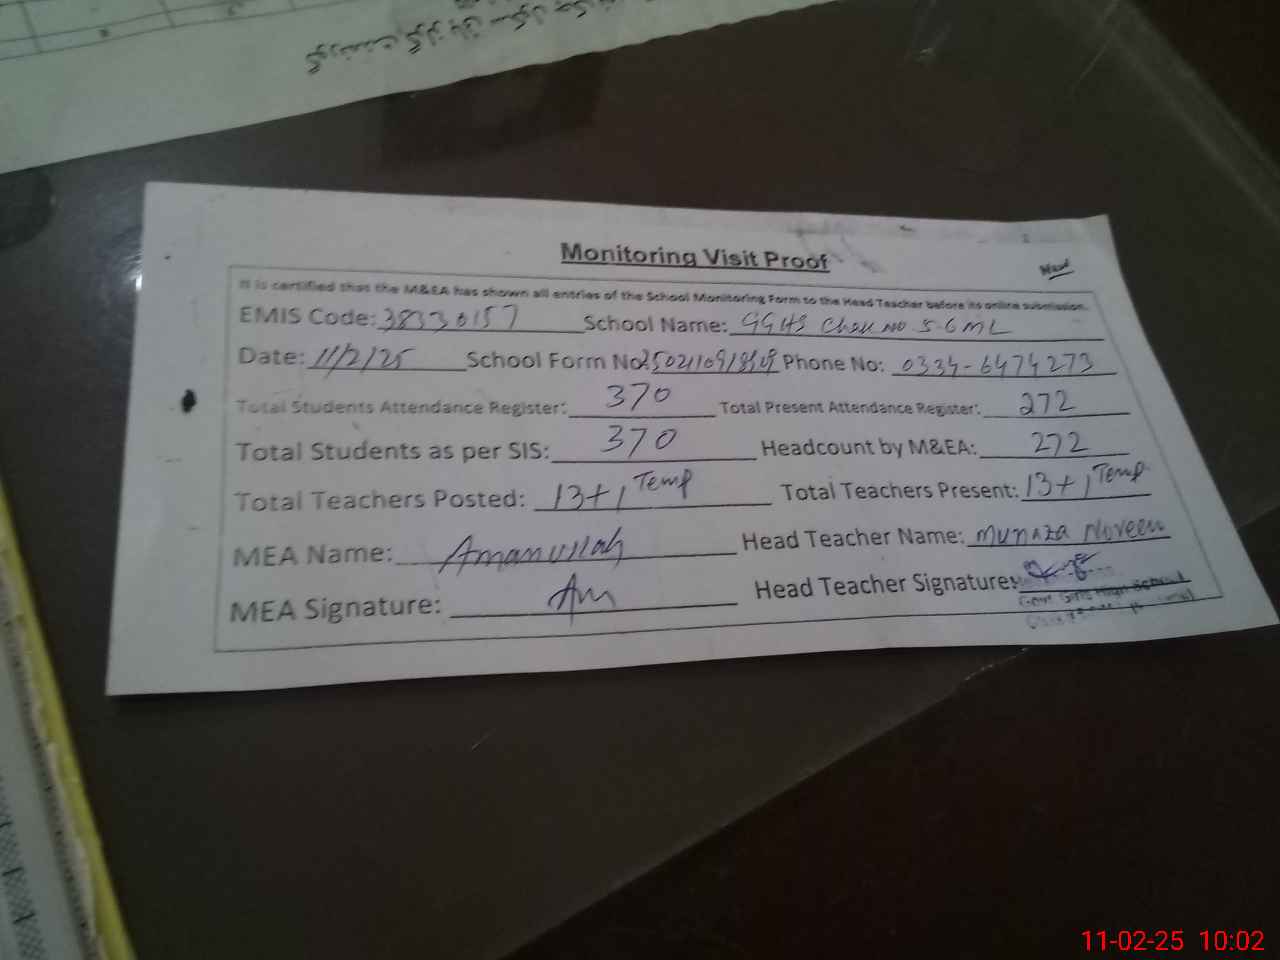 Monitoring Visit Proof
New
It is certified that the M&EA has shown all entries of the School Monitoring Form to the Head Teacher before its online submission.
EMIS Code: 38330157 School Name: GGHS Chak No 5-6 ML
Date: 11/2/25 School Form No: Phone No: 0334-6474273
Total Students Attendance Register: 370 Total Present Attendance Register: 272
Total Students as per SIS: 370 Headcount by M&EA: 272
Total Teachers Posted: 13+1 Temp Total Teachers Present: 13+1 Temp
MEA Name: Amanullah Head Teacher Name: Munaza Noreen
MEA Signature: Am Head Teacher Signature:
Govt Girls High School
11-02-25 10:02